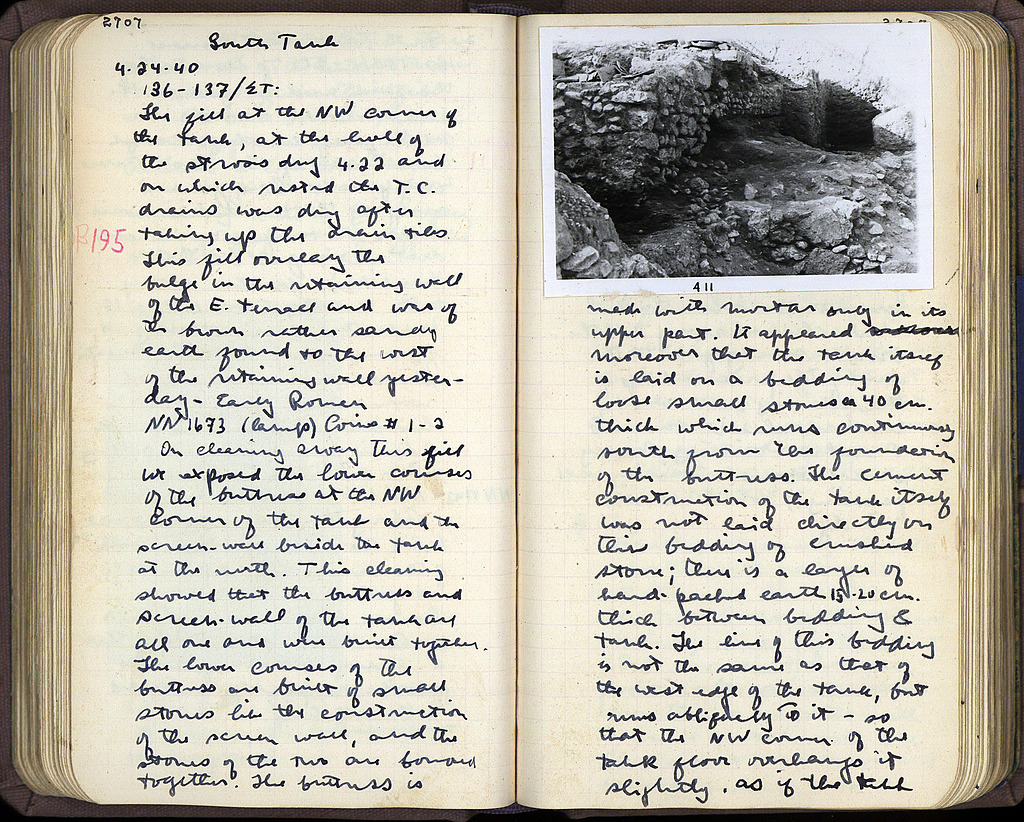 2707
South Tank
4.24.40
136-137/ΣΤ:
The fill at the NW corner of
the tank, at the level of
the strosis dug 4.22 and
on which rested the T.C.
drains was dug after
taking up the drain tiles.
B195
This fill overlay the
bulge in the retaining wall
of the E. terrace and was of
the brown rather sandy
earth found to the west
of the retaining wall yester-
day - Early Roman
NN 1673 (lamp) Coins # 1-2
In clearing away this fill
we exposed the lower courses
of the buttress at the NW
corner of the tank and the
screen-wall beside the tank
at the north. This cleaning
showed that the buttress and
screen-wall of the tank are
all one and were built together.
The lower courses of the
buttress are built of small
stones like the construction
of the screen wall, and the
stones of the two are bonded
together. The buttress is
411
made with mortar only in its
upper part. It appeared
moreover that the tank itself
is laid on a bedding of
loose small stones 40 cm.
thick which runs continuously
south from the foundation
of the buttress. The cement
construction of the tank itself
was not laid directly on
this bedding of crushed
stone; there is a layer of
hard-packed earth 15-20 cm.
thick between bedding &
tank. The line of this bedding
is not the same as that of
the west edge of the tank, but
runs obliquely to it - so
that the NW corner of the
tank floor overhangs it
slightly, as if the tank